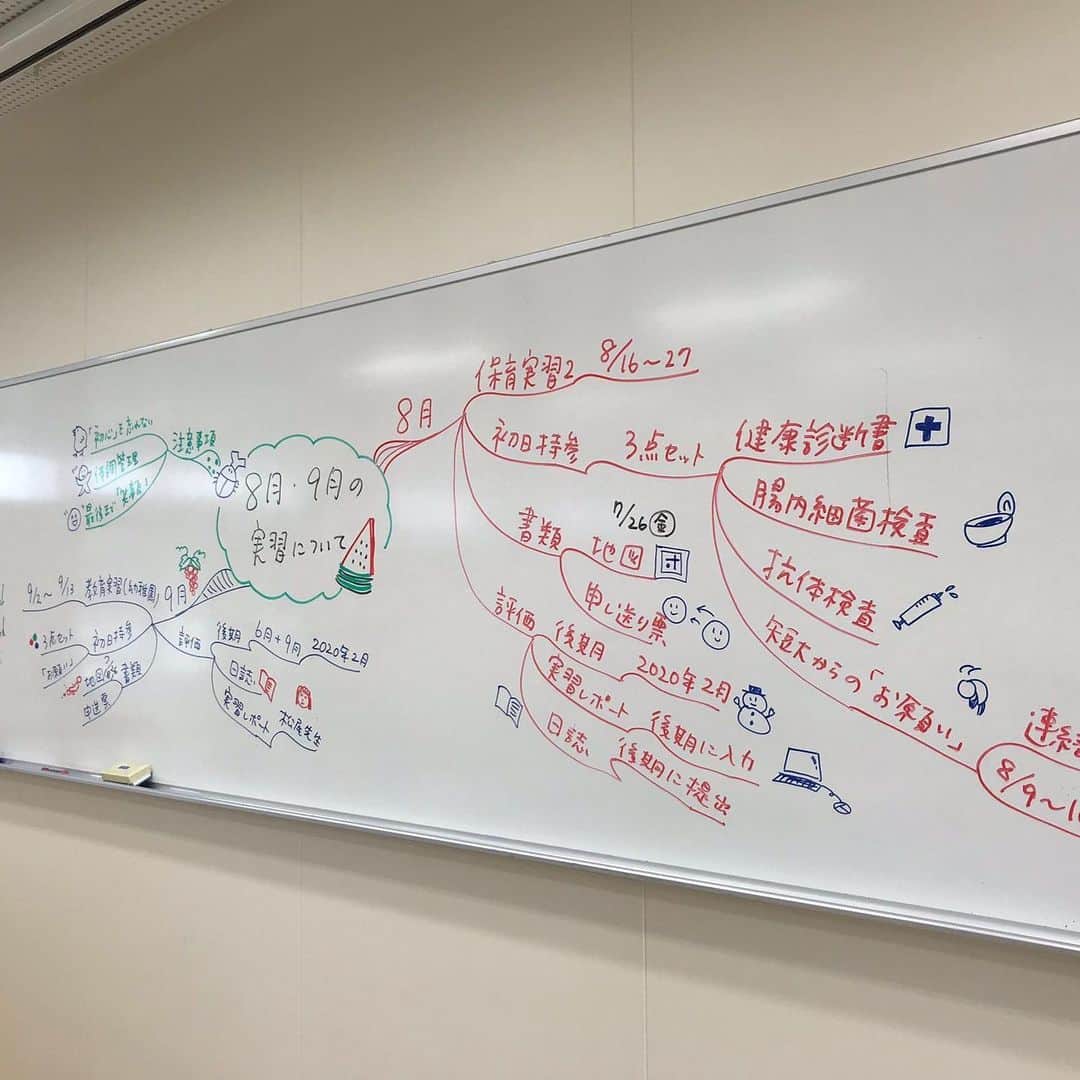 8月・9月の
実習について
8月
保育実習2 8/16～27
初日持参 3点セット
健康診断書
腸内細菌検査
抗体検査
短大からの「お願い」
8/9～
書類
7/26金
地図
申し送り票
評価
後期 2020年2月
実習レポート 後期に入力
日誌 後期に提出
9月
9/2～9/13 教育実習(幼稚園)
初日持参
3点セット
「お願い」
書類
地図
申送票
評価
後期 6月+9月 2020年2月
日誌
実習レポート 松尾先生
注意事項
「初心」を忘れない
体調管理
最後まで「笑顔」!